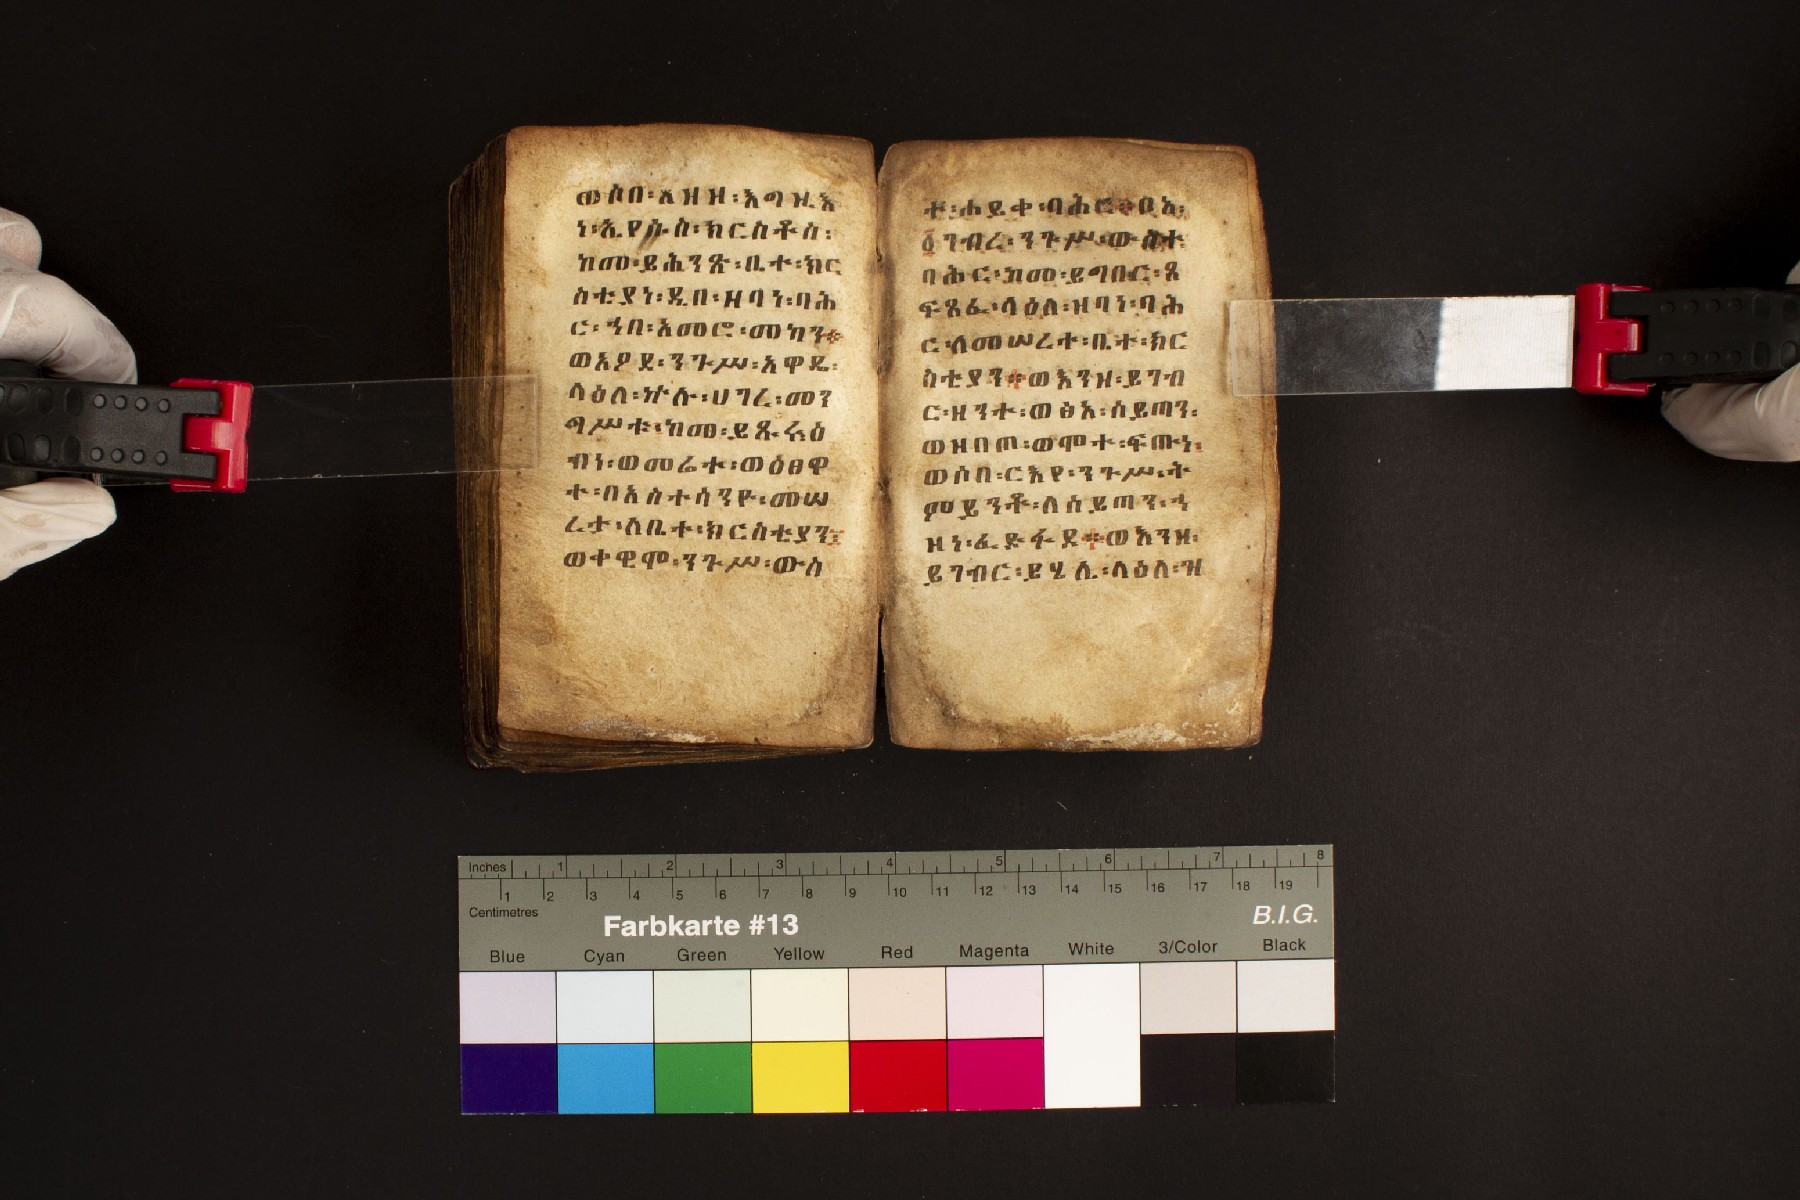 ወሶበ፡አዘዘ፡እግዚእ
ነ፡ኢየሱስ፡ክርስቶስ፡
ከመ፡ይሕንጽ፡ቤተ፡ክር
ስቲያነ፡ዲበ፡ዘባነ፡ባሕ
ር፡ኀበ፡አመሮ፡መካን፨
ወአዖደ፡ንጉሥ፡አዋዴ፡
ላዕለ፡ኵሉ፡ሀገረ፡መን
ግሥቱ፡ከመ፡ይጹሩ፡ዕ
ብነ፡ወመሬተ፡ወዕፀዋ
ተ፡በአስተሳንዮ፡መሠ
ረታ፡ለቤተ፡ክርስቲያን፤
ወቀዊሞ፡ንጉሥ፡ውስ
ቱ፡ሐይቀ፡ባሕሮ፨በአ፡
፩ገብረ፡ንጉሥ፡ውስተ፡
ባሕር፡ከመ፡ይግበር፡ጸ
ፍጸፈ፡ላዕለ፡ዘባነ፡ባሕ
ር፡ለመሠረተ፡ቤተ፡ክር
ስቲያን፨ወእንዘ፡ይገብ
ር፡ዘንተ፡ወፅአ፡ሰይጣን፡
ወዘበጦ፡ወሞተ፡ፍጡነ፡
ወሶበ፡ርእየ፡ንጉሥ፡ት
ምይንቶ፡ለሰይጣን፡ኀ
ዘነ፡ፈድፋደ፨ወእንዘ፡
ይገብር፡ይሄሊ፡ላዕለ፡ዝ
Inches 1 2 3 4 5 6 7 8
1 2 3 4 5 6 7 8 9 10 11 12 13 14 15 16 17 18 19
Centimetres
Farbkarte #13 B.I.G.
Blue Cyan Green Yellow Red Magenta White 3/Color Black